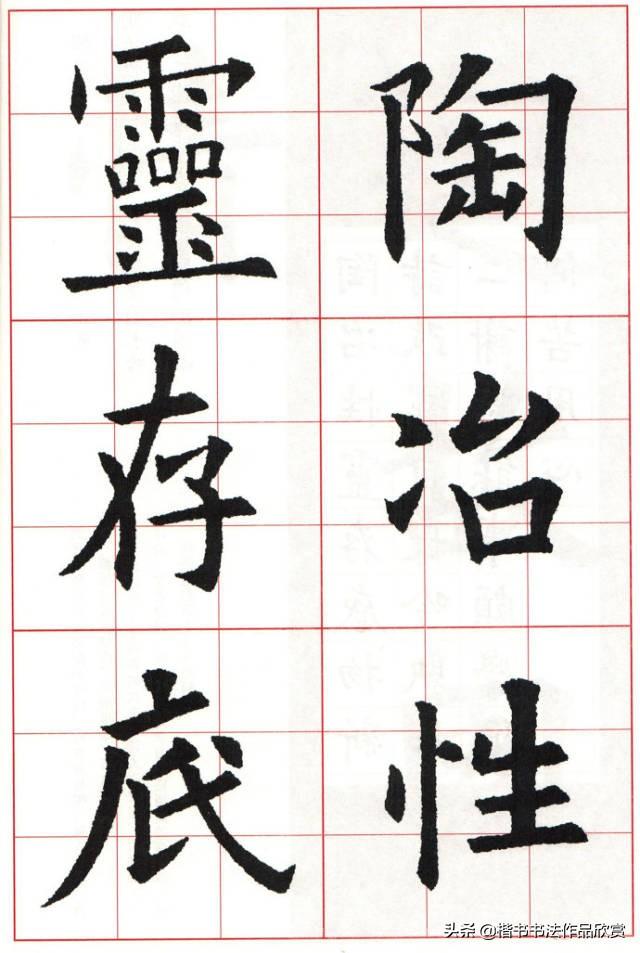 陶冶性
靈存底
头条 @楷书书法作品欣赏